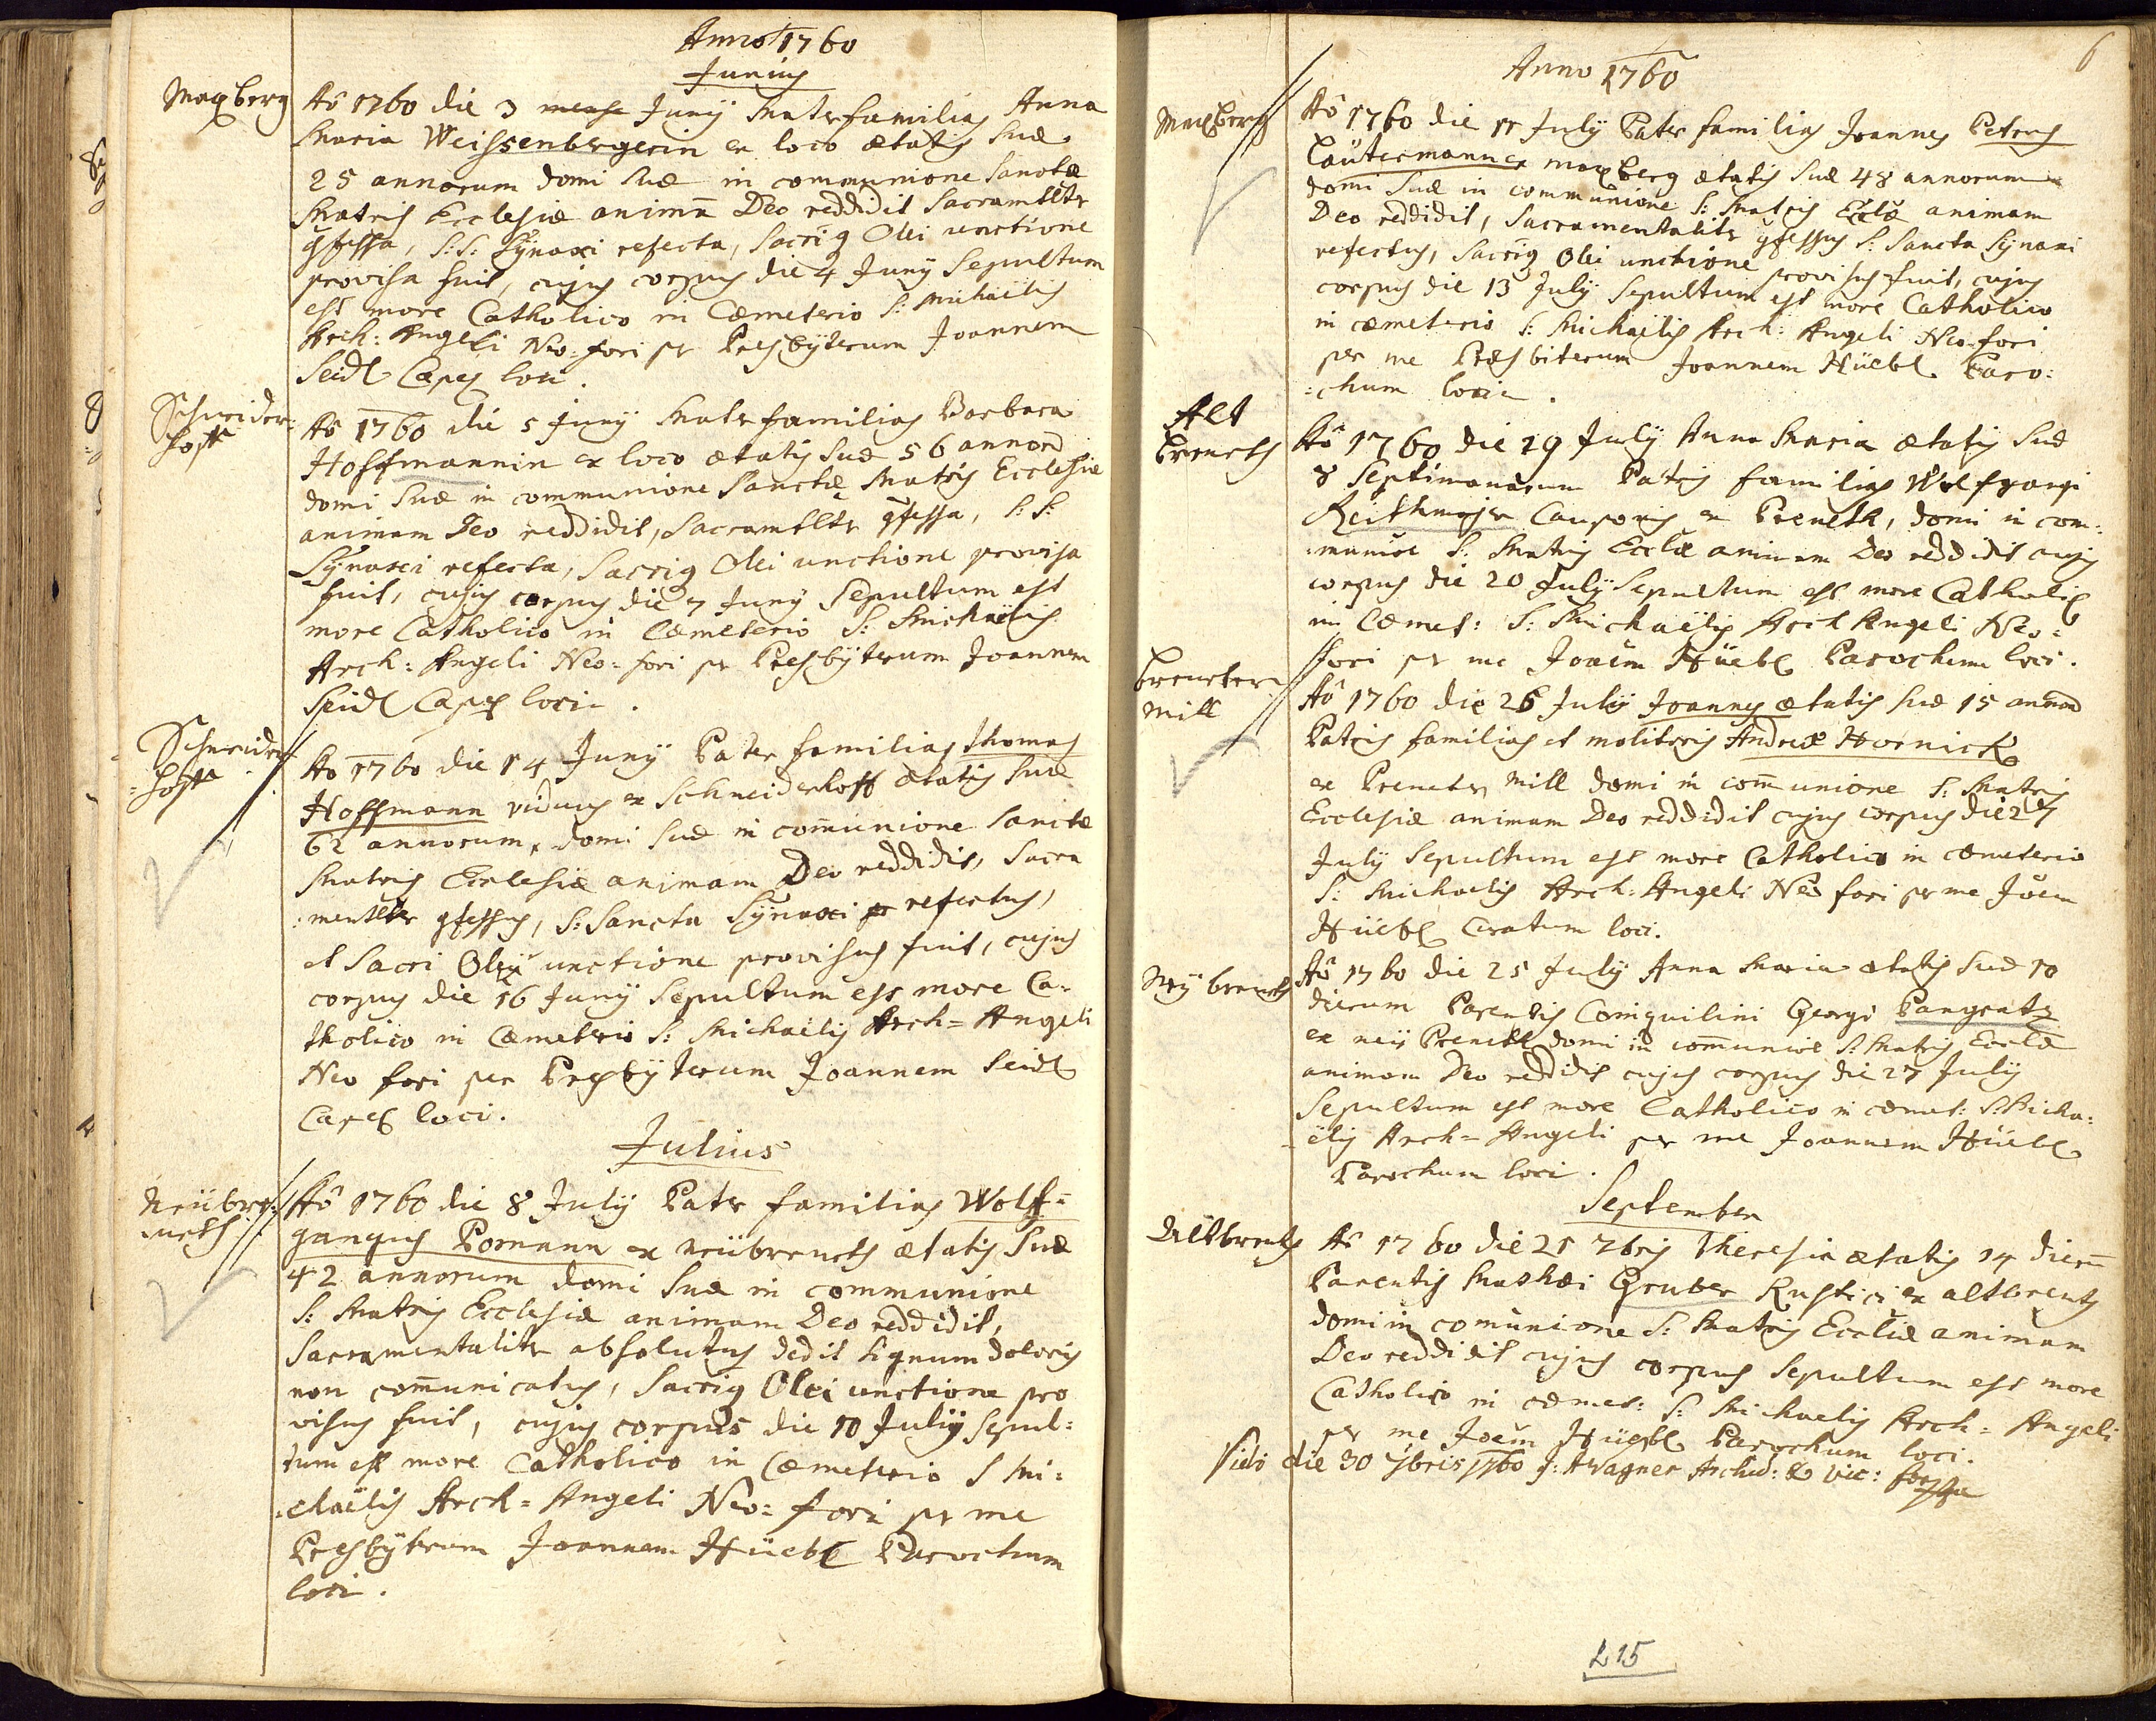 Anno 1760
Junius
Maxberg
Aô 1760 die 3 mense Junÿ Materfamilias Anna
Maria Weissenbergerin ex loco ætatis suæ
25 annorum domi suæ in communione Sanctæ
Matris Ecclesiæ animã Deo reddidit Sacramtltr
9fessa, S: S: Sÿnaxi refecta, Sacrig Olei unctione
provisa fuit, cujus corpus die 4 Junÿ Sepultum
est more Catholico in Cæmeterio S: Michaëlis
Arch: Angeli Neo=fori pr Presbÿterum Joannem
Seidl Capel loci.
Schneider=
hoff
Aô 1760 die 5 Junÿ Materfamilias Barbara
Hoffmannin ex loco ætatis suæ 56 annorũ
domi suæ in communione Sanctæ Matris Ecclesiæ
animam Deo reddidit, Sacramtltr 9fessa, S: S:
Sÿnaxi refecta, Sacrig Olei unctione provisa
fuit, cujus corpus die 7 Junÿ Sepultum est
more Catholico in Cæmeterio S: Michaëlis
Arch: Angeli Neo=fori pr Presbÿterum Joannem
Seidl Capel loci.
Schneider
=hoff
Ao 1760 die 14 Junÿ Pater familias Thomas
Hoffmann viduus ex Schneiderhoff ætatis suæ
62 annorum, domi suæ in com̃unione Sanctæ
Matris Ecclesiæ animam Deo reddidit, Sacra
:mentltr 9fessus, S: Sancta Sÿnaxi refectus,
et Sacri Oleÿ unctione provisus fuit, cujus
corpus die 16 Junÿ Sepultum est more Ca=
tholico in Cæmeterio S: Michaëlis Arch=Angeli
Neo fori per Presbÿterum Joannem Seidl
Capel loci.
Julius
Neübre=
neth
Aô 1760 die 8 Julÿ Pater familias Wolff=
gangus Pomann ex Neübreneth ætatis suæ
42 annorum domi suæ in communione
S: Matris Ecclesiæ animam Deo reddidit,
Sacramentaliter absolutus dedit signum doloris
non com̃unicatus, Sacrig Olei unctione pro
visus fuit, cujus corpus die 10 Julÿ Sepul=
tum est more Catholico in Cæmeterio S Mi=
:chaëlis Arch=Angeli Neo=fori pr me
Presbÿterum Joannem Hüebl Parochum
loci.
6
Anno 1760
Maxberg
Aô 1760 die 11 Julÿ Pater familias Joannes Petrus
Lautermann ex Maxberg ætatis suæ 48 annorum
domi suæ in communione S: Matris Ecclæ animam
Deo reddidit, Sacramentaliter 9fessus S: Sancta Sÿnaxi
refectus, Sacrig Olei unctione provisus fuit, cujus
corpus die 13 Julÿ Sepultum est more Catholico
in cæmeterio S: Michaëlis Arch: Angeli Neo=fori
per me Presbiterum Joannem Hüebl Paro:
:chum loci.
Alt
Breneth
Aô 1760 die 19 Julÿ Anna Maria ætatis suæ
8 Septimanarum Patris familias Wolfgangi
Reithmajer Cauponis ex Preneth, domi in com:
:munioe S: Matris Ecclæ animam Deo reddidit cujus
corpus die 20 Julÿ Sepultum est more Catholico
in Cæmet: S: Michaëlis Arch Angeli Neo=
fori pr me Joañem Hüebl Parochum loci.
Breneter
Mill
Aô 1760 die 26 Julÿ Joannes ætatis suæ 15 annorũ
Patris familias et molitoris Andreæ Hornick
ex Preneter Mill domi in com̃unione S: Matris
Ecclesiæ animam Deo reddidit cujus corpus die 27
Julÿ Sepultum est more Catholico in cæmeterio
S: Michaelis Arch: Angeli Neo fori pr me Joem
Hüebl Curatum loci.
Neÿ breneth
Aô 1760 die 25 Julÿ Anna Maria ætatis suæ 10
dierum Parentis Conquilini Georgi Pangratz
ex neü Preneth domi in com̃unioe S: Matris Ecclæ
animam Deo reddidit cujus corpus die 27 Julÿ
Sepultum est more Catholico in cæmet: S: Micha:
ëlis Arch=Angeli pr me Joannem Hüebl
Parochum loci.
September
Altbreneth
Aô 1760 die 21 7bris Theresia ætatis 14 dierũ
Parentis Mathæi Gruber Rustici ex altbreneth
domi in com̃unione S: Matris Eccliæ animam
Deo reddidit cujus corpus Sepultum est more
Catholico in cæmet: S: Michaelis Arch=Angeli
pr me Joẽm Hüebl Parochum loci.
Vidi die 30 7bris 1760 J: A Wagner Archid: & Vic: for
L 15